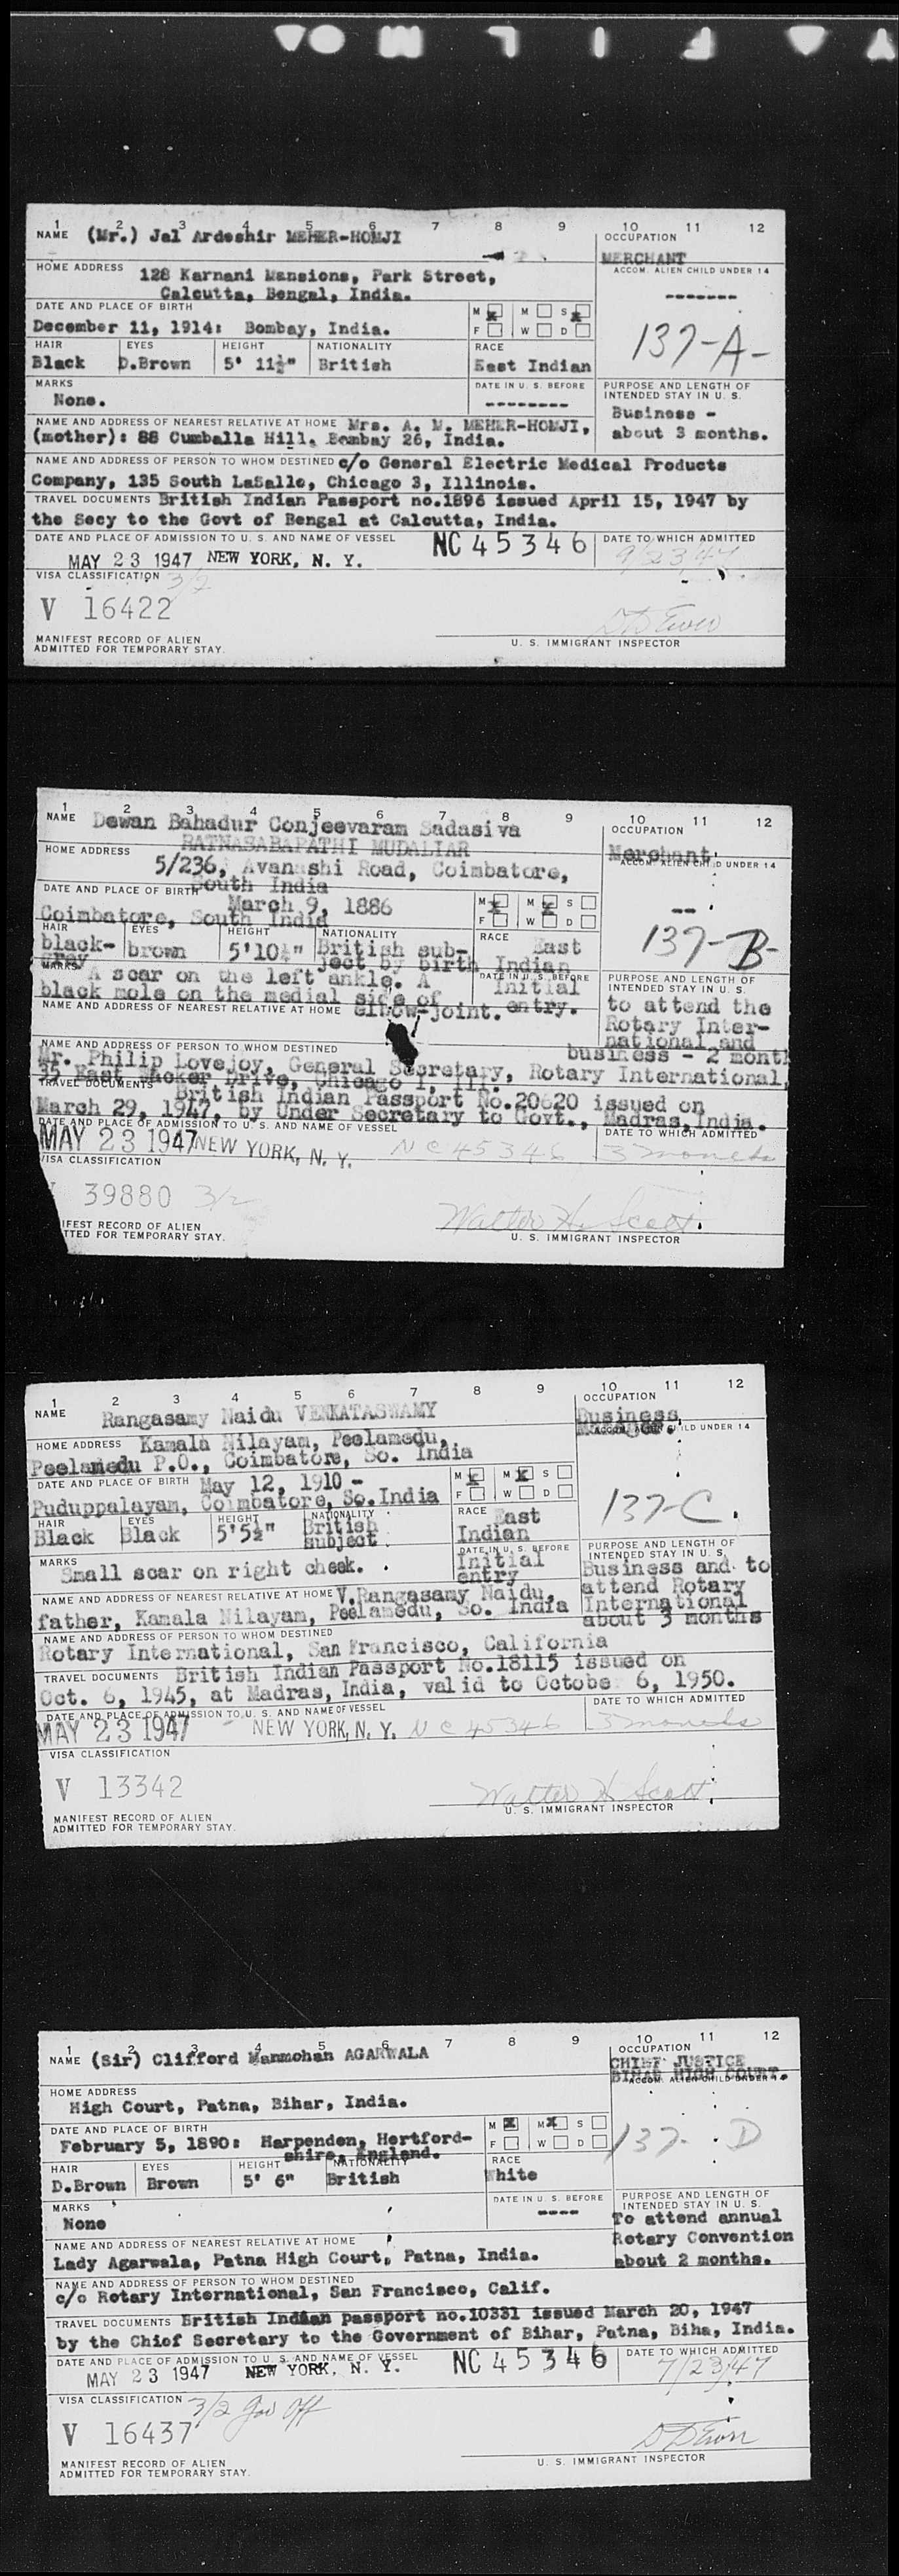 1 2 3 4 5 6 7 8 9 10 11 12
NAME (Mr.) Jal Ardeshir MEHER-HOMJI
OCCUPATION
MERCHANT
HOME ADDRESS 128 Karnani Mansions, Park Street,
Calcutta, Bengal, India.
ACCOM. ALIEN CHILD UNDER 14
-------
DATE AND PLACE OF BIRTH
December 11, 1914: Bombay, India.
M M S
F W D
137-A-
HAIR EYES HEIGHT NATIONALITY RACE
Black D.Brown 5' 11½" British East Indian
MARKS
None.
DATE IN U. S. BEFORE
--------
PURPOSE AND LENGTH OF
INTENDED STAY IN U. S.
Business -
about 3 months.
NAME AND ADDRESS OF NEAREST RELATIVE AT HOME Mrs. A. M. MEHER-HOMJI,
(mother): 88 Cumballa Hill, Bombay 26, India.
NAME AND ADDRESS OF PERSON TO WHOM DESTINED c/o General Electric Medical Products
Company, 135 South LaSalle, Chicago 3, Illinois.
TRAVEL DOCUMENTS British Indian Passport no.1896 issued April 15, 1947 by
the Secy to the Govt of Bengal at Calcutta, India.
DATE AND PLACE OF ADMISSION TO U. S. AND NAME OF VESSEL
MAY 23 1947 NEW YORK, N. Y. NC 45346
DATE TO WHICH ADMITTED
9/23/47
VISA CLASSIFICATION 3/2
V 16422
MANIFEST RECORD OF ALIEN
ADMITTED FOR TEMPORARY STAY.
U. S. IMMIGRANT INSPECTOR
1 2 3 4 5 6 7 8 9 10 11 12
NAME Dewan Bahadur Conjeevaram Sadasiva
RATNASABAPATHI MUDALIAR
OCCUPATION
Merchant.
HOME ADDRESS
5/236, Avanashi Road, Coimbatore,
South India
ACCOM. ALIEN CHILD UNDER 14
--
DATE AND PLACE OF BIRTH
March 9, 1886
Coimbatore, South India
M M S
F W D
137-B-
HAIR EYES HEIGHT NATIONALITY RACE
black-grey brown 5'10½" British subject by birth East Indian
MARKS A scar on the left ankle. A
black mole on the medial side of
elbow-joint.
DATE IN U. S. BEFORE
Initial
entry.
PURPOSE AND LENGTH OF
INTENDED STAY IN U. S.
to attend the
Rotary Inter-
national and
business - 2 month
NAME AND ADDRESS OF NEAREST RELATIVE AT HOME
NAME AND ADDRESS OF PERSON TO WHOM DESTINED
Mr. Philip Lovejoy, General Secretary, Rotary International,
35 East Wacker Drive, Chicago 1, Ill.
TRAVEL DOCUMENTS British Indian Passport No.20620 issued on
March 29, 1947, by Under Secretary to Govt., Madras, India.
DATE AND PLACE OF ADMISSION TO U. S. AND NAME OF VESSEL
MAY 23 1947 NEW YORK, N. Y. NC 45346
DATE TO WHICH ADMITTED
3 months
VISA CLASSIFICATION
39880 3/2
Walter H. Scott
IFEST RECORD OF ALIEN
TTED FOR TEMPORARY STAY.
U. S. IMMIGRANT INSPECTOR
1 2 3 4 5 6 7 8 9 10 11 12
NAME Rangasamy Naidu VENKATASWAMY
OCCUPATION
Business
HOME ADDRESS Kamala Nilayam, Peelamedu,
Peelamedu P.O., Coimbatore, So. India
DATE AND PLACE OF BIRTH May 12, 1910 -
Puduppalayam, Coimbatore, So.India
M M S
F W D
137-C.
HAIR EYES HEIGHT NATIONALITY RACE
Black Black 5'5½" British subject East Indian
MARKS
Small scar on right cheek.
DATE IN U. S. BEFORE
Initial
entry
PURPOSE AND LENGTH OF
INTENDED STAY IN U. S.
Business and to
attend Rotary
International
about 3 months
NAME AND ADDRESS OF NEAREST RELATIVE AT HOME V.Rangasamy Naidu,
father, Kamala Nilayam, Peelamedu, So. India
NAME AND ADDRESS OF PERSON TO WHOM DESTINED
Rotary International, San Francisco, California
TRAVEL DOCUMENTS British Indian Passport No.18115 issued on
Oct. 6, 1945, at Madras, India, valid to Octobe 6, 1950.
DATE AND PLACE OF ADMISSION TO U. S. AND NAME OF VESSEL
MAY 23 1947 NEW YORK, N. Y. NC 45346
DATE TO WHICH ADMITTED
3 months
VISA CLASSIFICATION
V 13342
Walter H. Scott
MANIFEST RECORD OF ALIEN
ADMITTED FOR TEMPORARY STAY.
U. S. IMMIGRANT INSPECTOR
1 2 3 4 5 6 7 8 9 10 11 12
NAME (Sir) Clifford Manmohan AGARWALA
OCCUPATION
CHIEF JUSTICE
BIHAR HIGH COURT.
ACCOM. ALIEN CHILD UNDER 14
HOME ADDRESS
High Court, Patna, Bihar, India.
DATE AND PLACE OF BIRTH
February 5, 1890: Harpenden, Hertford-
shire, England.
M M S
F W D
137- D
HAIR EYES HEIGHT NATIONALITY RACE
D.Brown Brown 5' 6" British White
MARKS
None
DATE IN U. S. BEFORE
----
PURPOSE AND LENGTH OF
INTENDED STAY IN U. S.
To attend annual
Rotary Convention
about 2 months.
NAME AND ADDRESS OF NEAREST RELATIVE AT HOME
Lady Agarwala, Patna High Court, Patna, India.
NAME AND ADDRESS OF PERSON TO WHOM DESTINED
c/o Rotary International, San Francisco, Calif.
TRAVEL DOCUMENTS British Indian passport no.10331 issued March 20, 1947
by the Chief Secretary to the Government of Bihar, Patna, Biha, India.
DATE AND PLACE OF ADMISSION TO U. S. AND NAME OF VESSEL
MAY 23 1947 NEW YORK, N. Y. NC 45346
DATE TO WHICH ADMITTED
7/23/47
VISA CLASSIFICATION 3/2 Gov Off
V 16437
MANIFEST RECORD OF ALIEN
ADMITTED FOR TEMPORARY STAY.
U. S. IMMIGRANT INSPECTOR